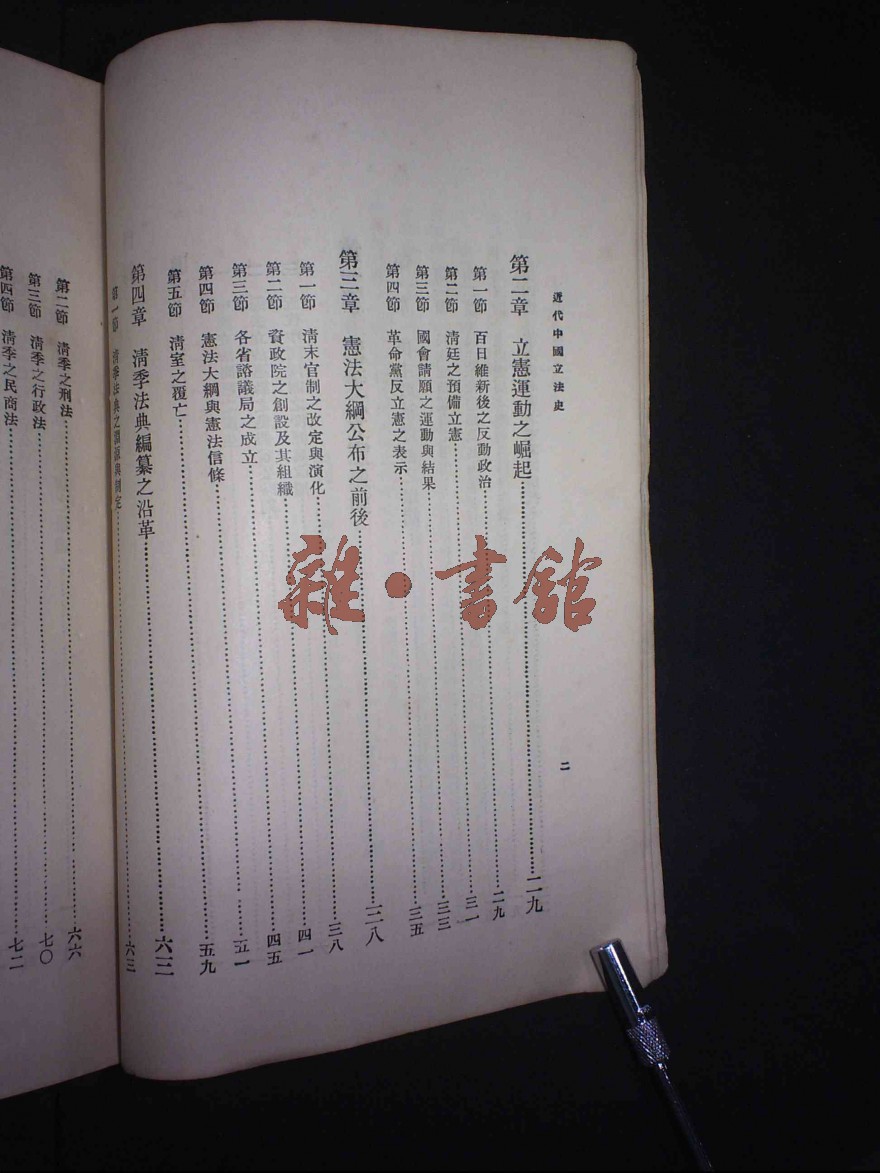 近代中國立法史
二
第二章 立憲運動之崛起……二九
第一節 百日維新後之反動政治……二九
第二節 清廷之預備立憲……三一
第三節 國會請願之運動與結果……三三
第四節 革命黨反立憲之表示……三五
第三章 憲法大綱公布之前後……三八
第一節 清末官制之改定與演化……三八
第二節 資政院之創設及其組織……四一
第三節 各省諮議局之成立……四五
第四節 憲法大綱與憲法信條……五一
第五節 清室之覆亡……五九
第四章 清季法典編纂之沿革……六三
第一節 清季法典之淵源與制定……六三
第二節 清季之刑法……六六
第三節 清季之行政法……七〇
第四節 清季之民商法……七二
雜·書館